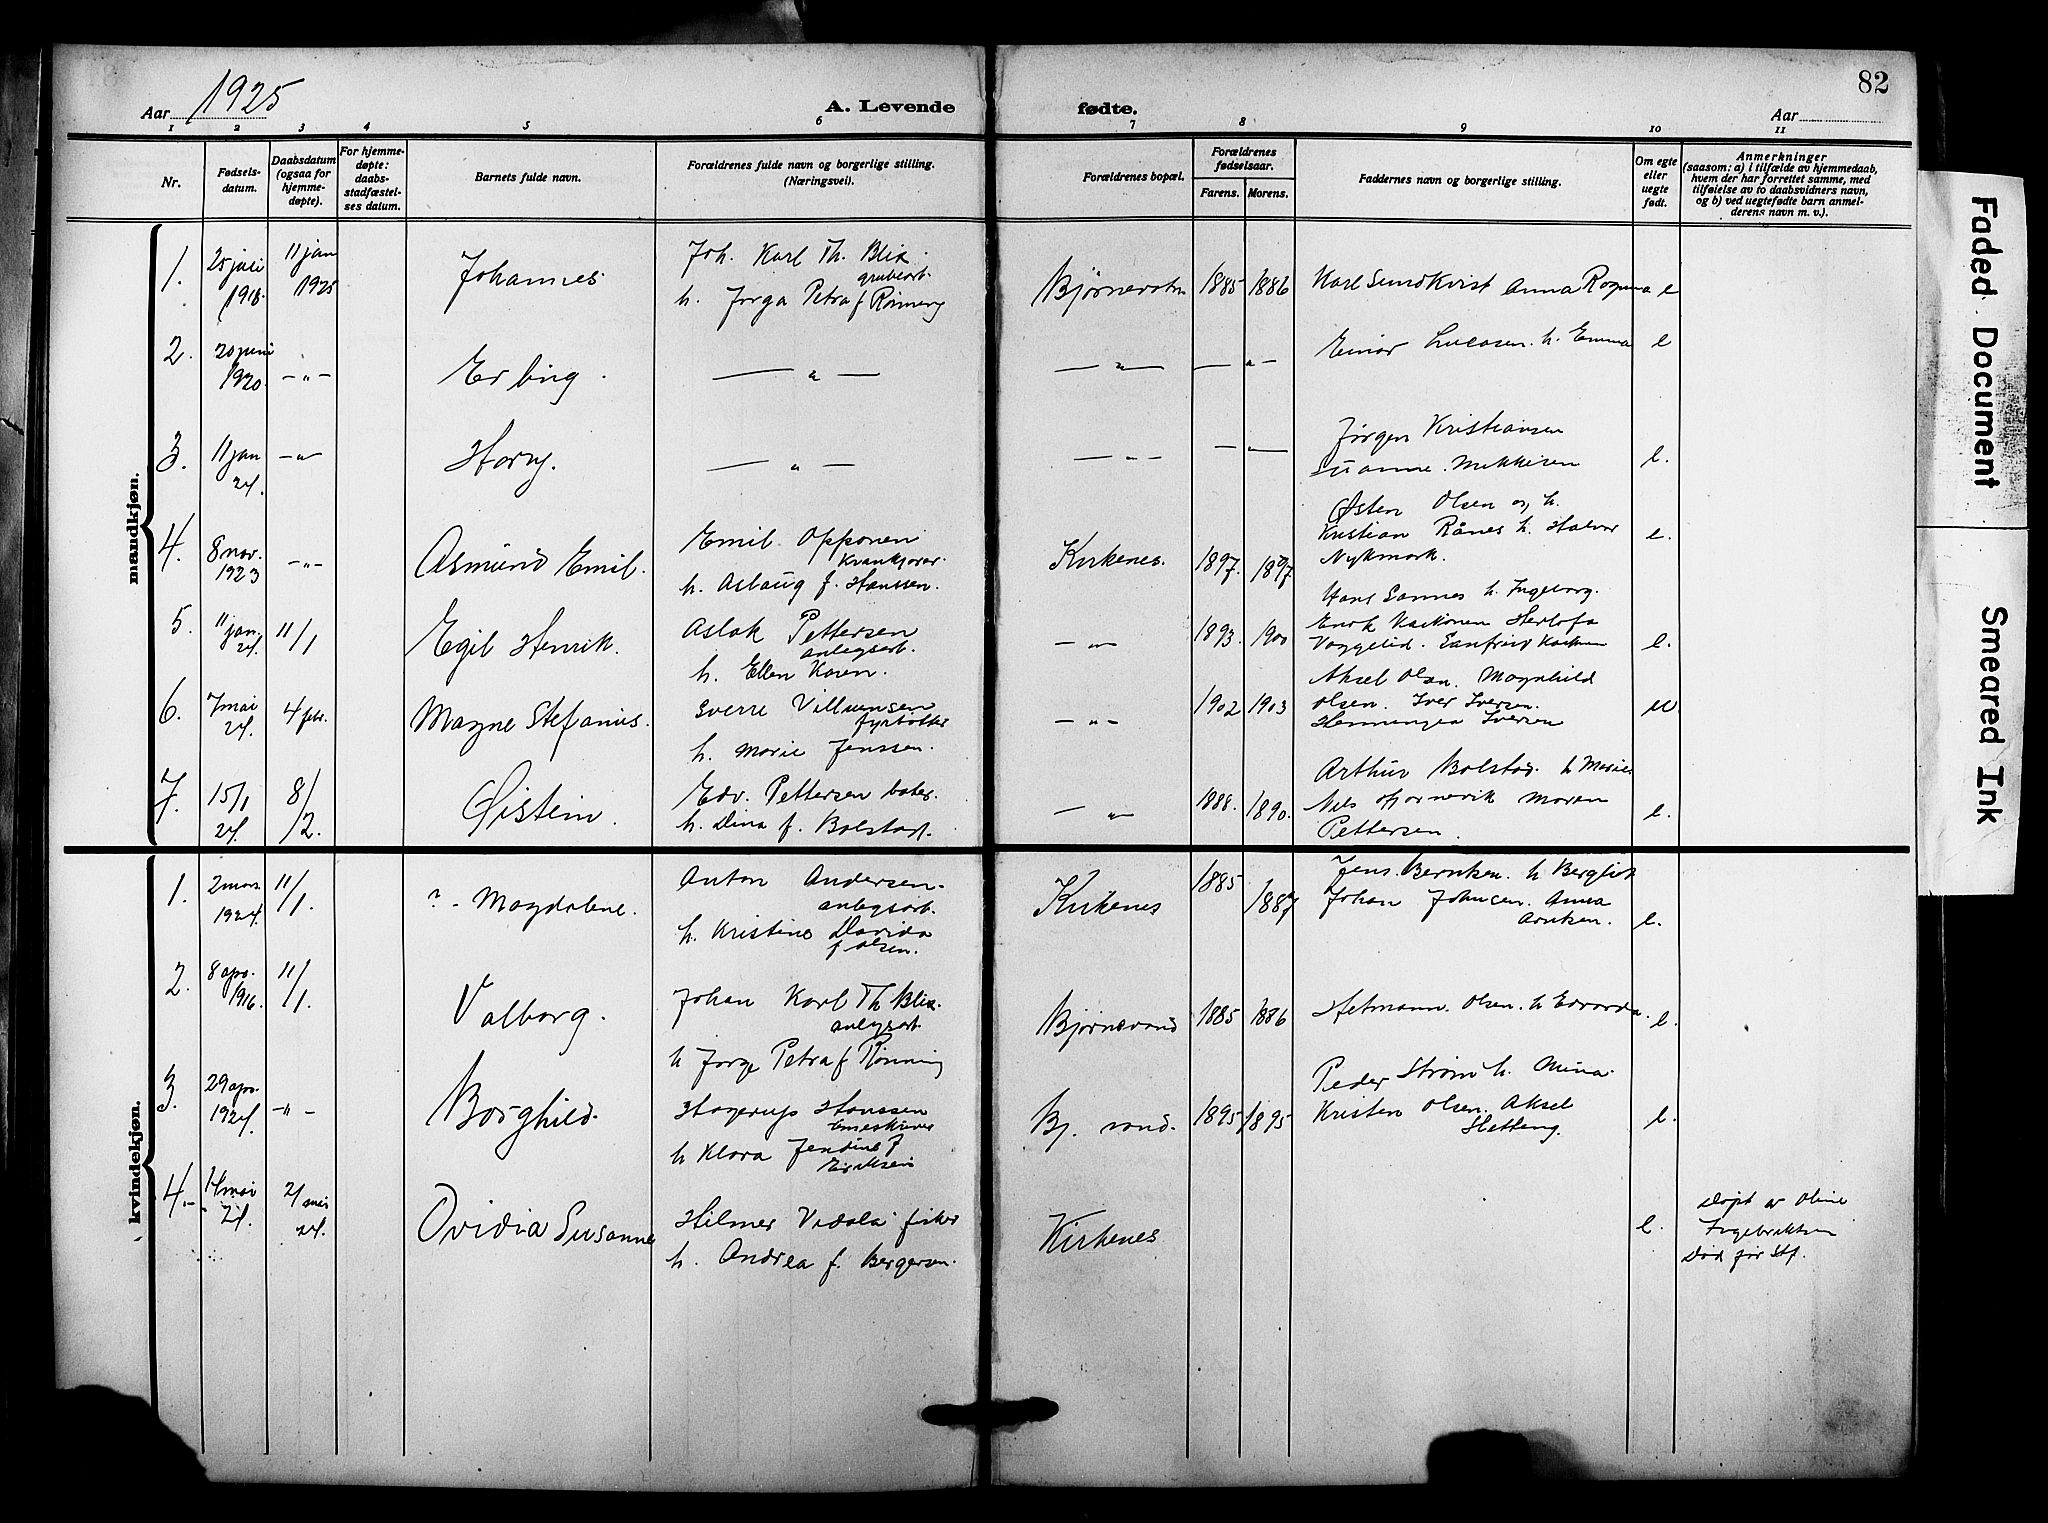 82
Aar 1925
A. Levende
fødte.
Aar
1 2 3 4 5 6 7 8 9 10 11
Nr.
Fødsels-
datum.
Daabsdatum
(ogsaa for
hjemme-
døpte).
For hjemme-
døpte:
daabs-
stadfæstel-
ses datum.
Barnets fulde navn.
Forældrenes fulde navn og borgerlige stilling.
(Næringsvei).
Forældrenes bopæl.
Forældrenes
fødselsaar.
Farens. Morens.
Faddernes navn og borgerlige stilling.
Om egte
eller
uegte
født.
Anmerkninger
(saasom: a) i tilfælde av hjemmedaab,
hvem der har forrettet samme, med
tilføielse av to daabsvidners navn,
og b) ved uegtefødte barn anmel-
derens navn m. v.).
mandkjøn.
1. 25 juli 1918. 11 jan 1925 Johannes
Joh. Karl Th. Blix.
grubearb.
h. Jorga Petra f Rønning
1885 1886 Karl Sundkvist Anna Rogma e
2. 20 juni 1920. -„- Erling. -„- -„- -„-
Einar Lucasen. h. Emma e
3. 11 jan 24. -„- Harry. -„- -„- -„-
Jørgen Kristiansen
Susanne Mikkelsen e.
4. 8 nov. 1923 -„- Asmund Emil.
Emil Opponen
h. Aslaug f. Hanssen.
Kirkenes. 1897. 1897
Østen Olsen og h.
Kristian Rånes h. Halvor
Nykmark. e.
5. 11 jan. 24. 11/1 Egil Henrik.
Aslak Pettersen
anlegsarb.
h. Ellen Karen.
-„- 1893. 1900
Hans Sannes h. Ingeborg.
e.
6. 7 mai 24. 4 febr. Magne Stefanius.
Sverre Villumsen
fyrbøter
h. Marie Jenssen.
-„- 1902 1903
Aksel Olsen. Magnhild
Olsen. Iver Iversen.
Henningea Iversen
7. 15/1 24. 8/2. Øistein.
Edv. Pettersen
h. Dina f. Bolstad.
-„- 1888. 1890.
Arthur Bolstad. h Marie
Nils Maren
Pettersen. e.
kvindekjøn.
1. 2 mars 1924. 11/1. ? - Magdalene.
Anton Andersen.
anlegsarb.
h. Kristine Davida
f Olsen.
Kirkenes 1885 1887
Jens Bernken. h Bergliot
Johan Johnsen. Anna
Arntzen. e.
2. 8 apr. 1916. 11/1. Valborg.
Johan Karl Th Blix.
anlegsarb.
h Jorge Petra f Rønning
Bjørnevand 1885 1886
Hetmann Olsen. h Edvarda. e.
3. 29 apr. 1924. -„- Borghild.
Hagerup Hanssen
h Klara Jendine f
Eriksen
Bj. vand. 1895 1895
Peder Strøm h. Mina.
Kristen Olsen. Aksel
Sletteng. e.
4.- 14 mai 24. 21 mai 24. Ovidia Susanne
Hilmer Vidala fisker
h. Andrea f. Bergersen.
Kirkenes e.
Døpt av Oline
Ingebriktsen
Død før Stf.
Faded Document
Smeared Ink